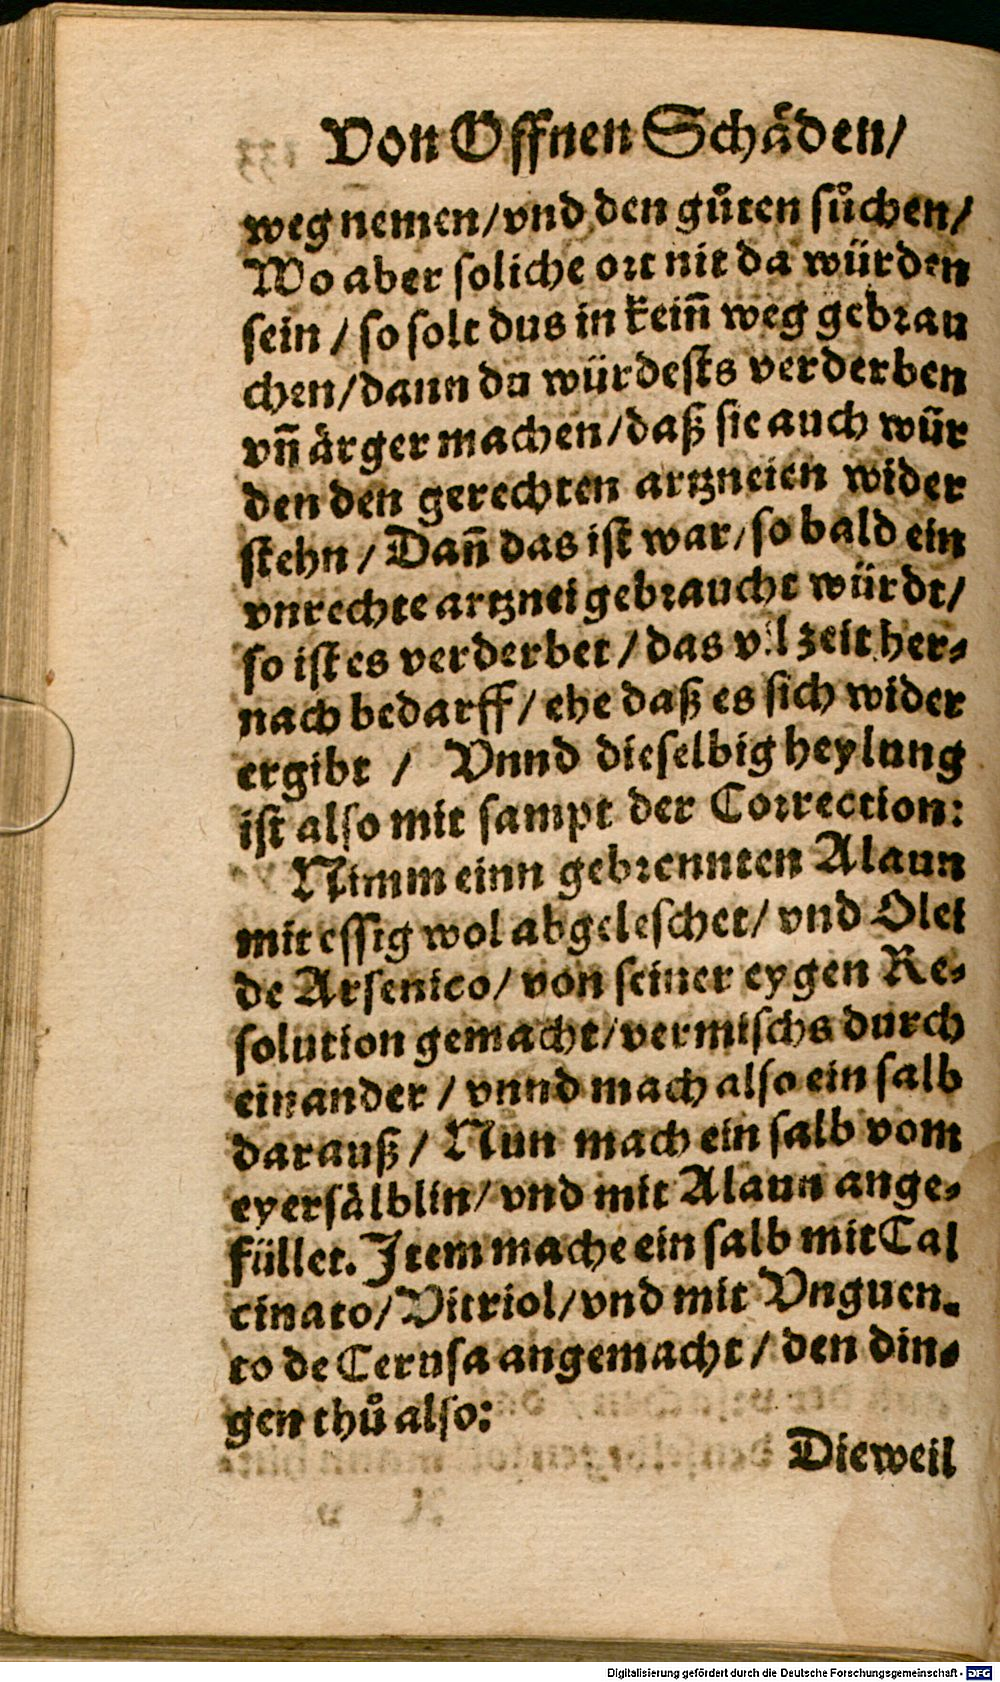 Von Offnen Schäden/
weg nemen/vnd den gůten sůchen/
Wo aber soliche ort nit da würden
sein / so solt dus in keiñ weg gebrau
chen/dann du würdests verderben
vñ ärger machen/daß sie auch wür
den den gerechten artzneien wider
stehn / Dañ das ist war/so bald ein
vnrechte artznei gebraucht würdt/
so ist es verderbet / das vil zeit her-
nach bedarff / ehe daß es sich wider
ergibt / Vnnd dieselbig heylung
ist also mit sampt der Correction:
Nimm einn gebrennten Alaun
mit essig wol abgeleschet/ vnd Olei
de Arsenico/ von seiner eygen Re-
solution gemacht/vermischs durch
einander / vnnd mach also ein salb
darauß / Nun mach ein salb vom
eyersälblin/ vnd mit Alaun ange-
füllet. Item mache ein salb mit Cal
cinato/ Vitriol/ vnd mit Vnguen-
to de Cerusa angemacht / den din-
gen thů also:
Dieweil
Digitalisierung gefördert durch die Deutsche Forschungsgemeinschaft - DFG